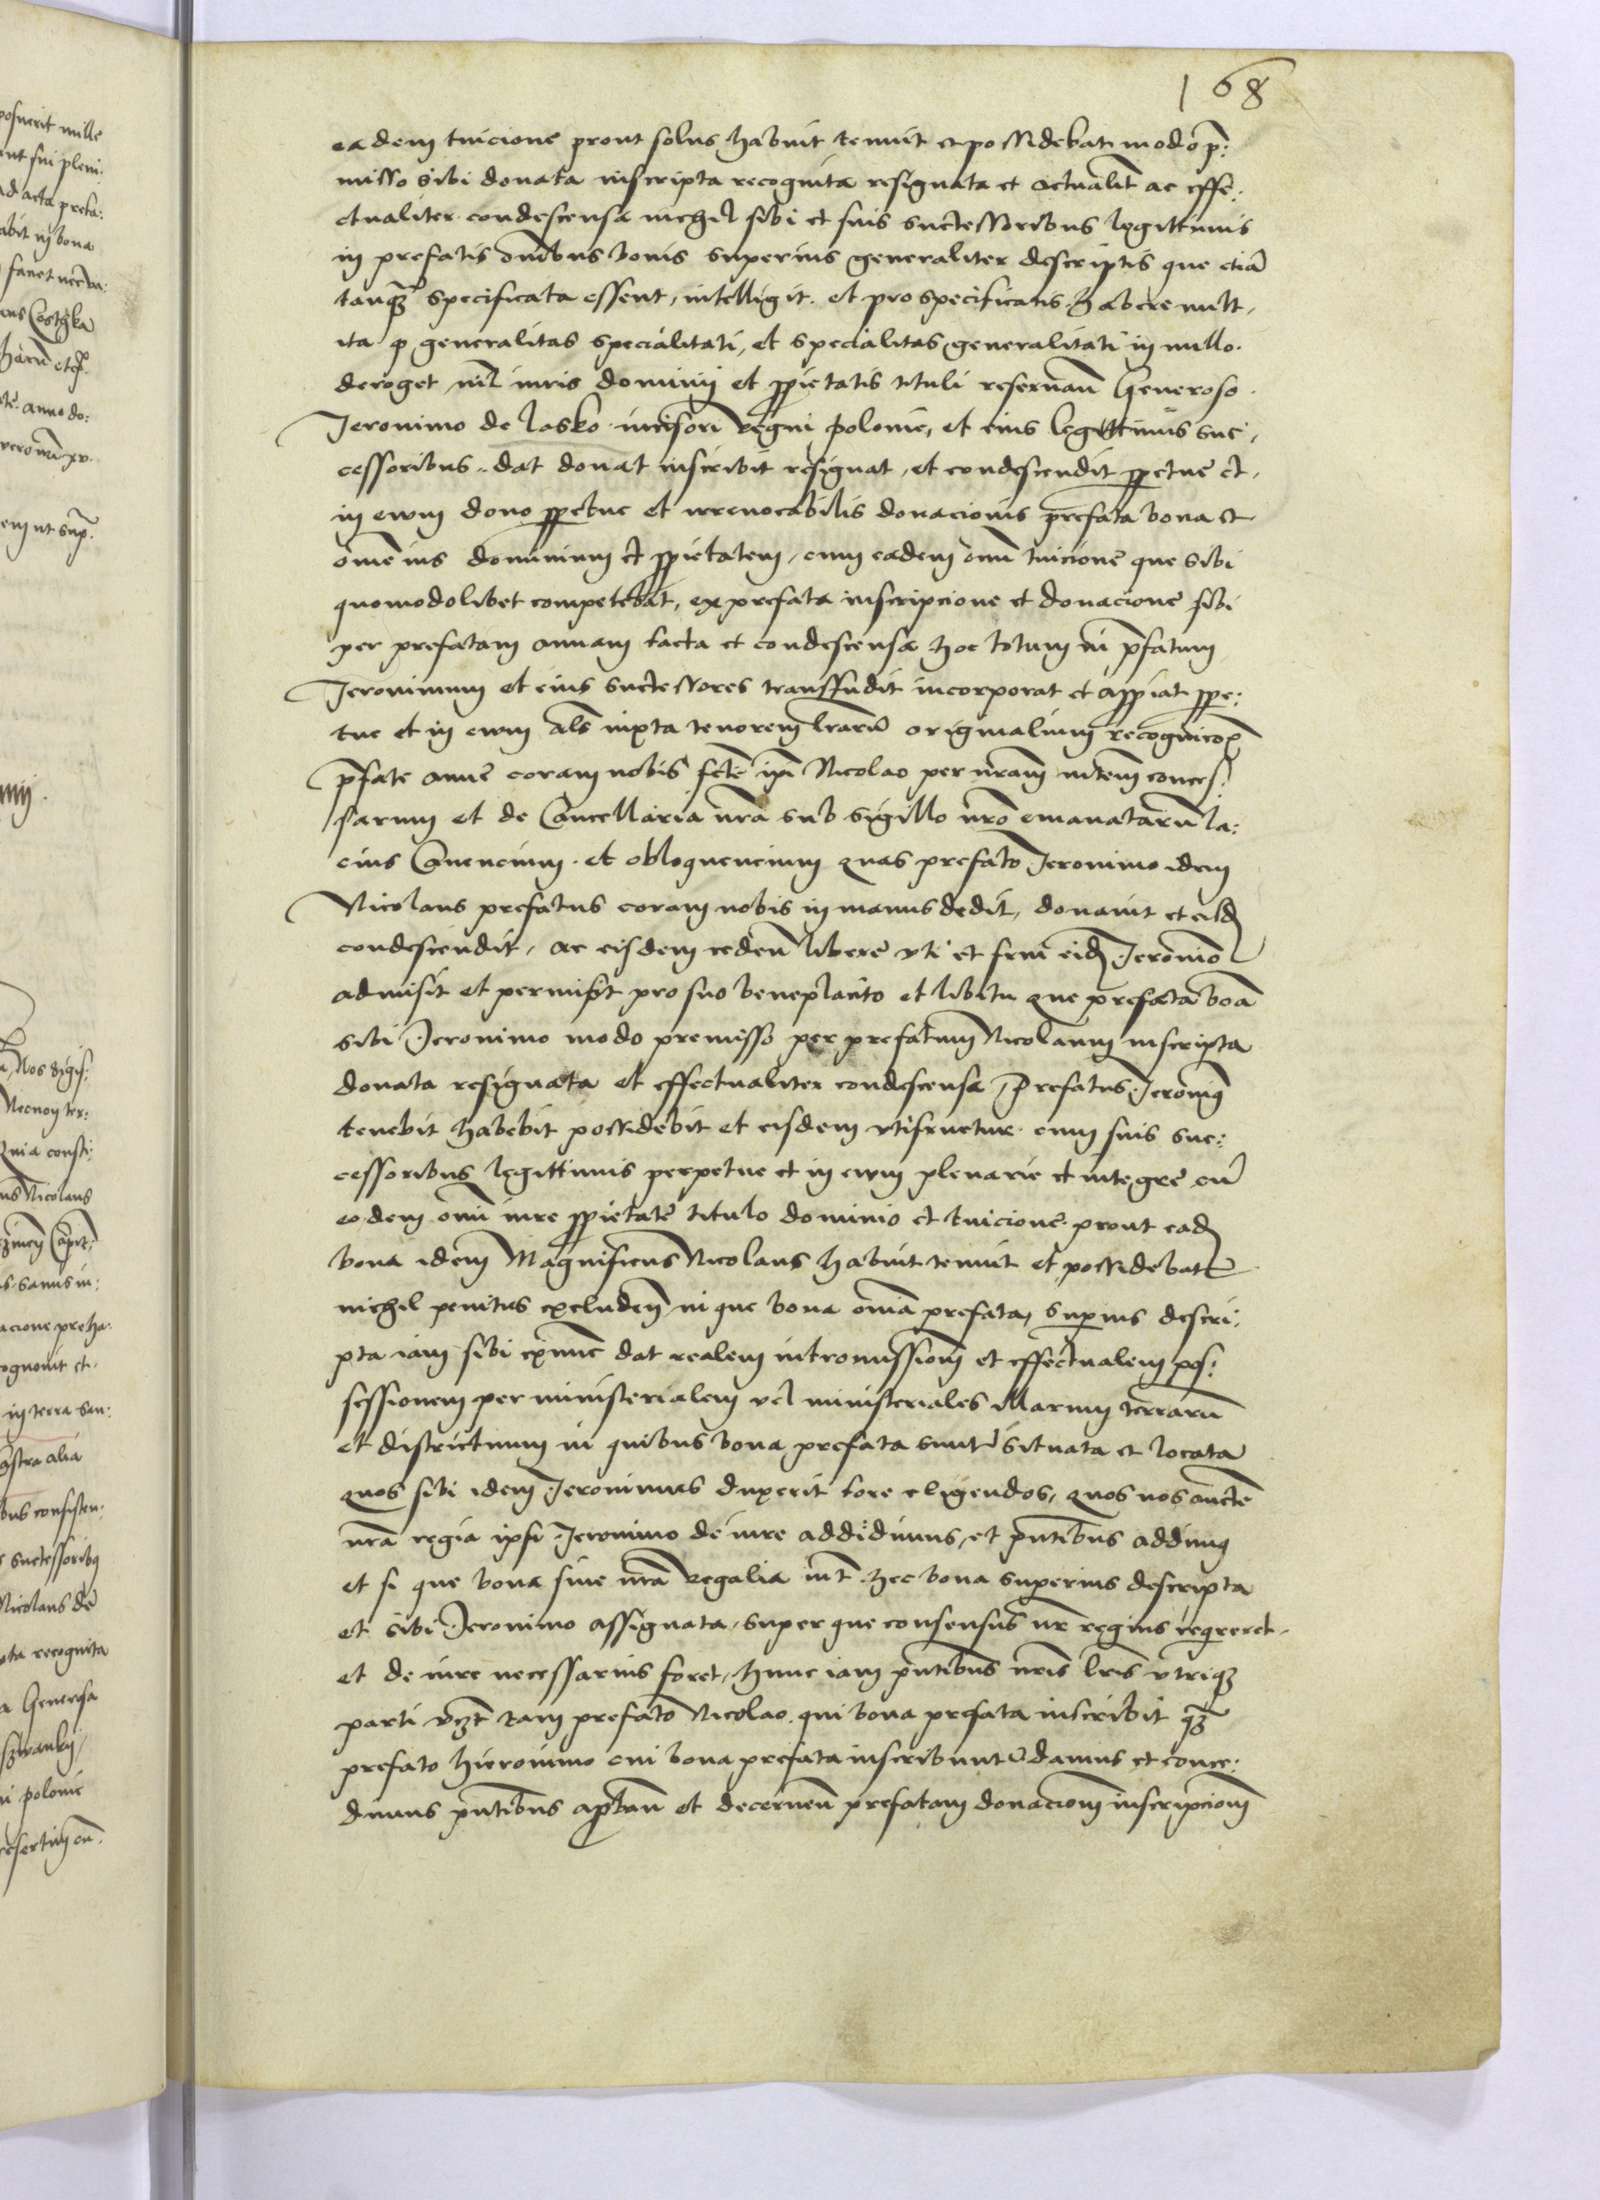 168
eadem tuicione prout solus habuit tenuit et possidebat modo p̄:
misso sibi donata inscripta recognita resignata et actualit̄ ac effe:
ctualiter condescensa nichil sibi et suis successoribus legittimis
in prefatis om̄ibus bonis superius generaliter descriptis que etiā
tanqꝫ specificata essent, intelligit et pro specificatis habere vult,
ita ꝙ generalitas specialitati, et specialitas generalitati in nullo
deroget nil iuris dominij et ꝓprietatis tituli reservan̄ Generoso
Jeronimo de Lasko incisori Regni polonie, et eius legittimis suc,
cessoribus dat donat inscribit resignat, et condescendit ꝑpetue et
in ewm dono ꝑpetue et irrevocabilis donacionis prefata bona et
om̄e ius dominium et ꝓprietatem, cum eadem om̄i tuicione que sibi
quomodolibet competebat, ex prefata inscripcione et donacione sibi
per prefatam annam facta et condescensa hoc totum in p̄fatum
Jeronimum et eius successores transfudit incorporat et apꝓpriat ꝑpe:
tue et in ewm als iuxta tenorem l̄rarū originalium recognicōꝫ
p̄fate anne coram nobis fct̄e ip̄i Nicolao per n̄ram m̄tem conces:
sarum et de Cancellaria n̄ra sub sigillo n̄ro emanatarū la:
cius Canencium et obloquencium quas prefato Jeronimo idem
Nicolaus prefatus coram nobis in manus dedit, donavit et eisdꝫ
condescendit, ac eisdem ceden̄ libere uti et frui eidꝫ Jeronimo
admisit et permisit pro suo beneplacito et libitu que prefata bōa
sibi Jeronimo modo premisso per prefatum Nicolaum inscripta
donata resignata et effectualiter condescensa Prefatus Jeronimꝫ
tenebit habebit possidebit et eisdem utifruetur cum suis suc:
cessoribus legittimis perpetue et in ewm plenarie et integre cū
eodem om̄i iure ꝓprietate titulo dominio et tuicione prout eadꝫ
bona idem Magnificus Nicolaus habuit tenuit et possidebat
nichel penitus excluden̄ in que bona om̄ia prefata, superius descri:
pta iam sibi exnunc dat realem intromissionē et effectualem pos:
sessionem per ministerialem vel ministeriales illarum terrarū
et districtuum in quibus bona prefata sunt situata et locata
quos sibi idem Jeronimus duxerit fore eligendos, quos nos auct̄e
n̄ra regia ipsi Jeronimo de iure addidimus, et p̄ntibus addimꝫ
et si que bona sive iura Regalia int̄ hec bona superius descripta
et sibi Jeronimo assignata, super que consensus n̄r regius reqreret,
et de iure necessarius foret, hunc iam p̄ntibus n̄ris l̄ris utriqꝫ
parti vꝫt tam prefato Nicolao qui bona prefata inscribit qꝫ
prefato Hieronimo cui bona prefata inscribunt̄ damus et conce:
dimus p̄ntibus aptan̄ et decernen̄ prefatam donacionē inscripcionē